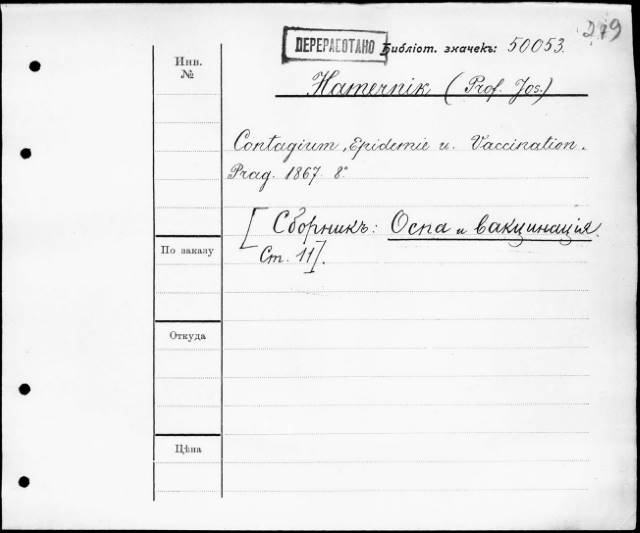 279
ПЕРЕРАБОТАНО Библіот. значекъ: 50053.
Инв.
№
Hamernik (Prof. Jos.)
Contagium, Epidemie u. Vaccination.
Prag. 1867. 8°
[Сборникъ: Оспа и вакцинація.
Ст. 11].
По заказу
Откуда
Цѣна